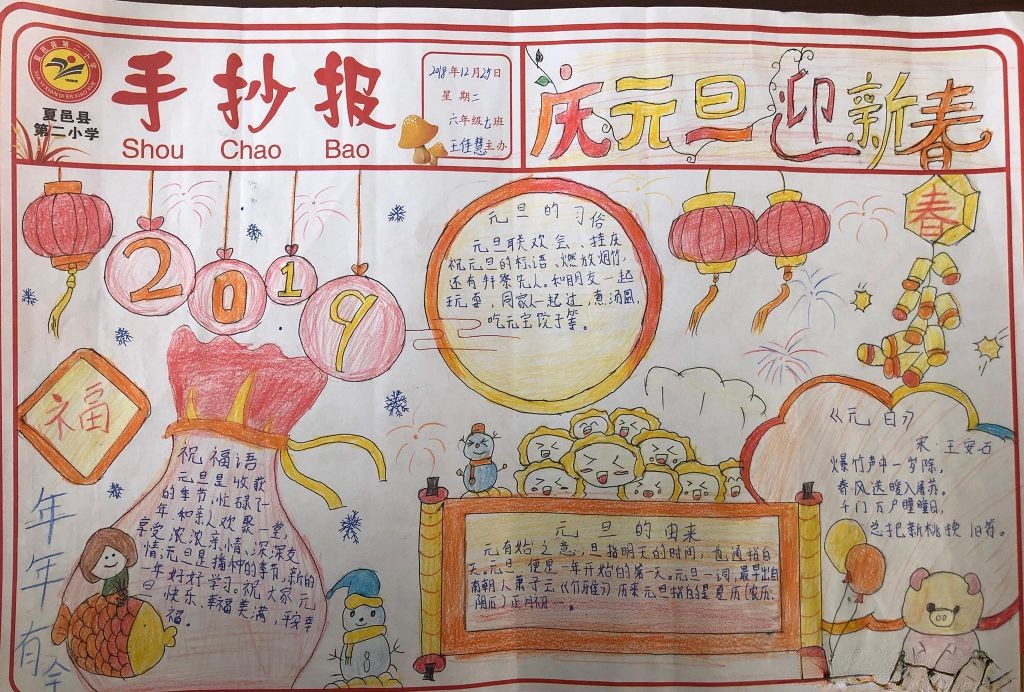 夏邑县第二小学
XIA YI XIAN DI ER XIAO XUE
夏邑县
第二小学
手抄报
Shou Chao Bao
2018年12月25日
星期二
六年级七班
王佳慧主办
庆元旦迎新春
2019
春
福
年年有余
元旦的习俗
元旦联欢会、挂庆
祝元旦的标语、燃放烟竹,
还有拜祭先人。和朋友一起
玩耍,同家人一起过,煮汤圆,
吃元宝饺子等。
祝福语
元旦是收获
的季节,忙碌了一
年,和亲人欢聚一堂,
享受浓浓亲情、深深友
情,元旦是播种的季节,新的
一年好好学习。祝大家元
旦快乐、幸福美满,平安幸
福。
元旦的由来
元有始之意,旦指明天的时间,也通指白
天。元旦,便是一年开始的第一天。元旦一词,最早出自
南朝人萧子云《介雅》历来元旦指的是夏历(农历、
阴历)正月初一。
《元日》
宋 王安石
爆竹声中一岁除,
春风送暖入屠苏。
千门万户曈曈日,
总把新桃换旧符。